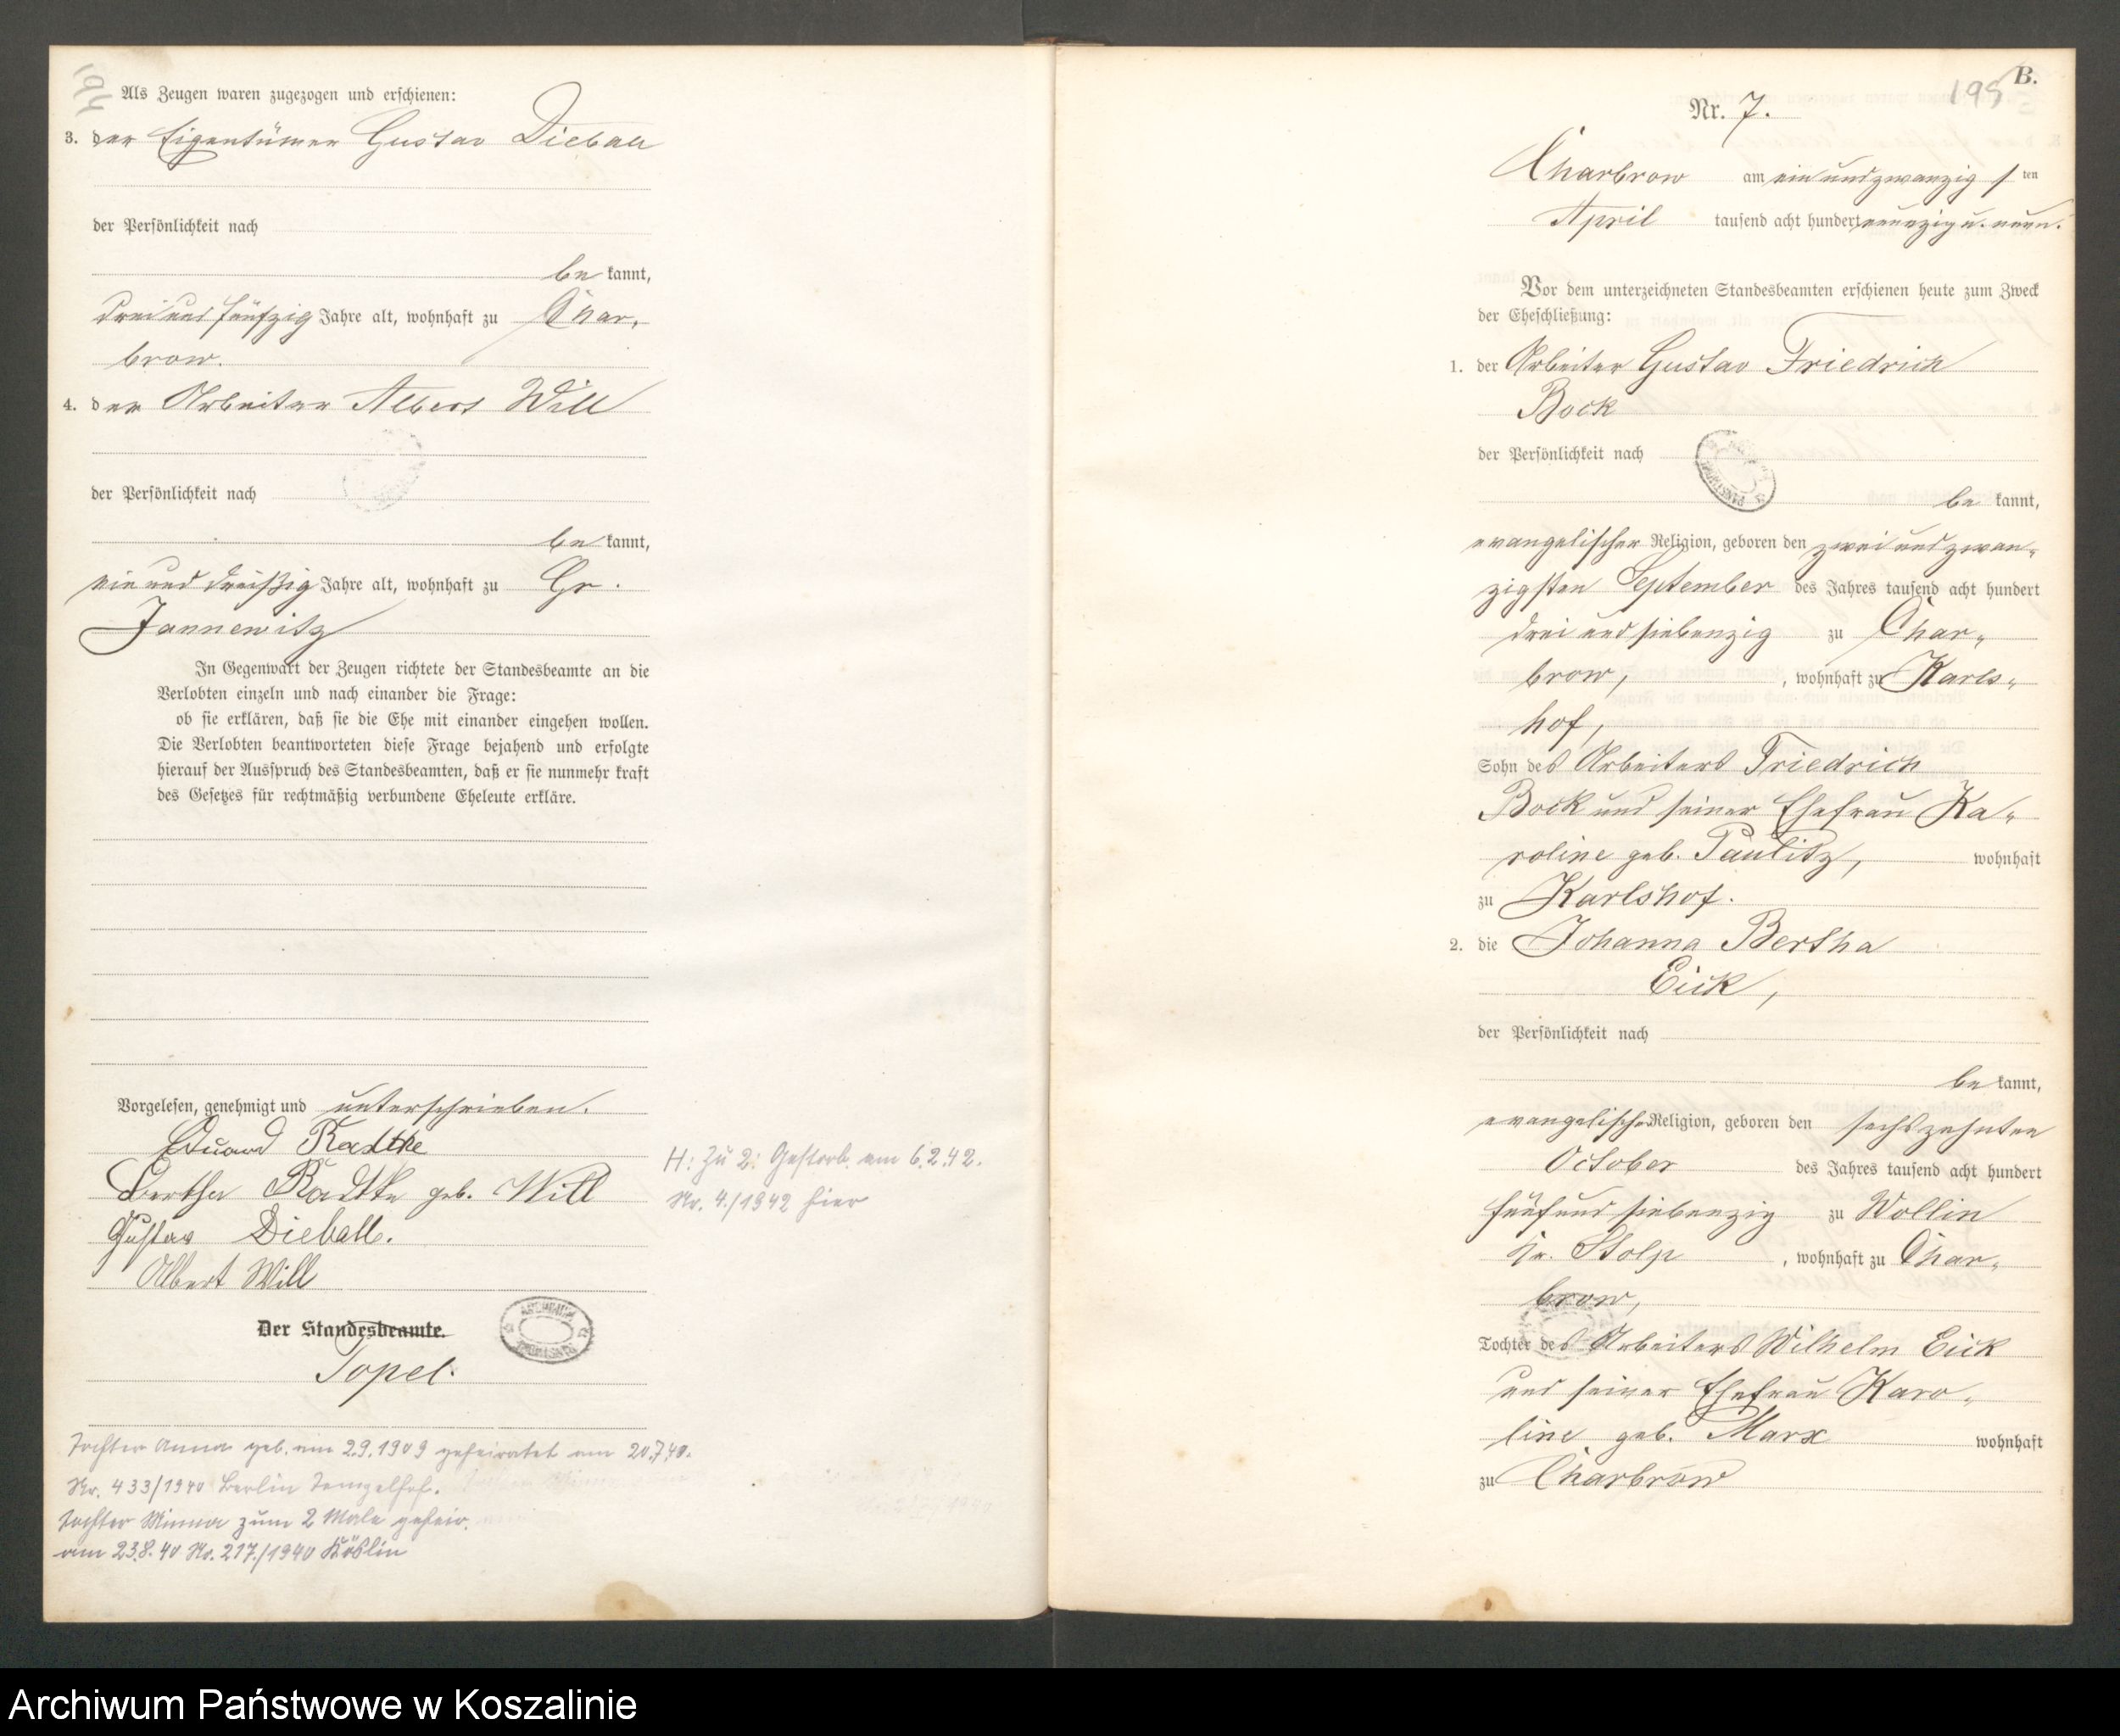 194
Als Zeugen waren zugezogen und erschienen:
3. der Eigentümer Gustav Dieball
der Persönlichkeit nach
be kannt,
drei und fünfzig Jahre alt, wohnhaft zu Char-
brow.
4. der Arbeiter Albert Will
der Persönlichkeit nach
be kannt,
ein und dreißig Jahre alt, wohnhaft zu Gr.
Jannewitz
In Gegenwart der Zeugen richtete der Standesbeamte an die
Verlobten einzeln und nach einander die Frage:
ob sie erklären, daß sie die Ehe mit einander eingehen wollen.
Die Verlobten beantworteten diese Frage bejahend und erfolgte
hierauf der Ausspruch des Standesbeamten, daß er sie nunmehr kraft
des Gesetzes für rechtmäßig verbundene Eheleute erkläre.
Vorgelesen, genehmigt und unterschrieben.
Eduard Radtke
Bertha Radtke geb. Will
Gustav Dieball.
Albert Will
Der Standesbeamte.
Topel.
H: Zu 2: Gestorb. am 6.2.42.
Nr. 4./1942 hier
Tochter Anna geb. am 2.9.1909 geheiratet am 20.7.40.
Nr. 433/1940 Berlin Tempelhof.
Tochter Minna zum 2 Male geheir.
am 23.8.40 Nr. 217./1940 Köslin
B.
195
Nr. 7.
Charbrow am ein und zwanzig sten
April tausend acht hundert neunzig u. neun.
Vor dem unterzeichneten Standesbeamten erschienen heute zum Zweck
der Eheschließung:
1. der Arbeiter Gustav Friedrich
Bock
der Persönlichkeit nach
be kannt,
evangelischer Religion, geboren den zwei und zwan-
zigsten September des Jahres tausend acht hundert
drei und siebenzig zu Char-
brow, , wohnhaft zu Karls-
hof,
Sohn des Arbeiters Friedrich
Bock und seiner Ehefrau Ka-
roline geb. Paulitz, wohnhaft
zu Karlshof.
2. die Johanna Bertha
Eick,
der Persönlichkeit nach
be kannt,
evangelischer Religion, geboren den sechszehnten
October des Jahres tausend acht hundert
fünf und siebenzig zu Wollin
Kr. Stolp , wohnhaft zu Char-
brow,
Tochter des Arbeiters Wilhelm Eick
und seiner Ehefrau Karo-
line geb. Marx wohnhaft
zu Charbrow
Archiwum Państwowe w Koszalinie